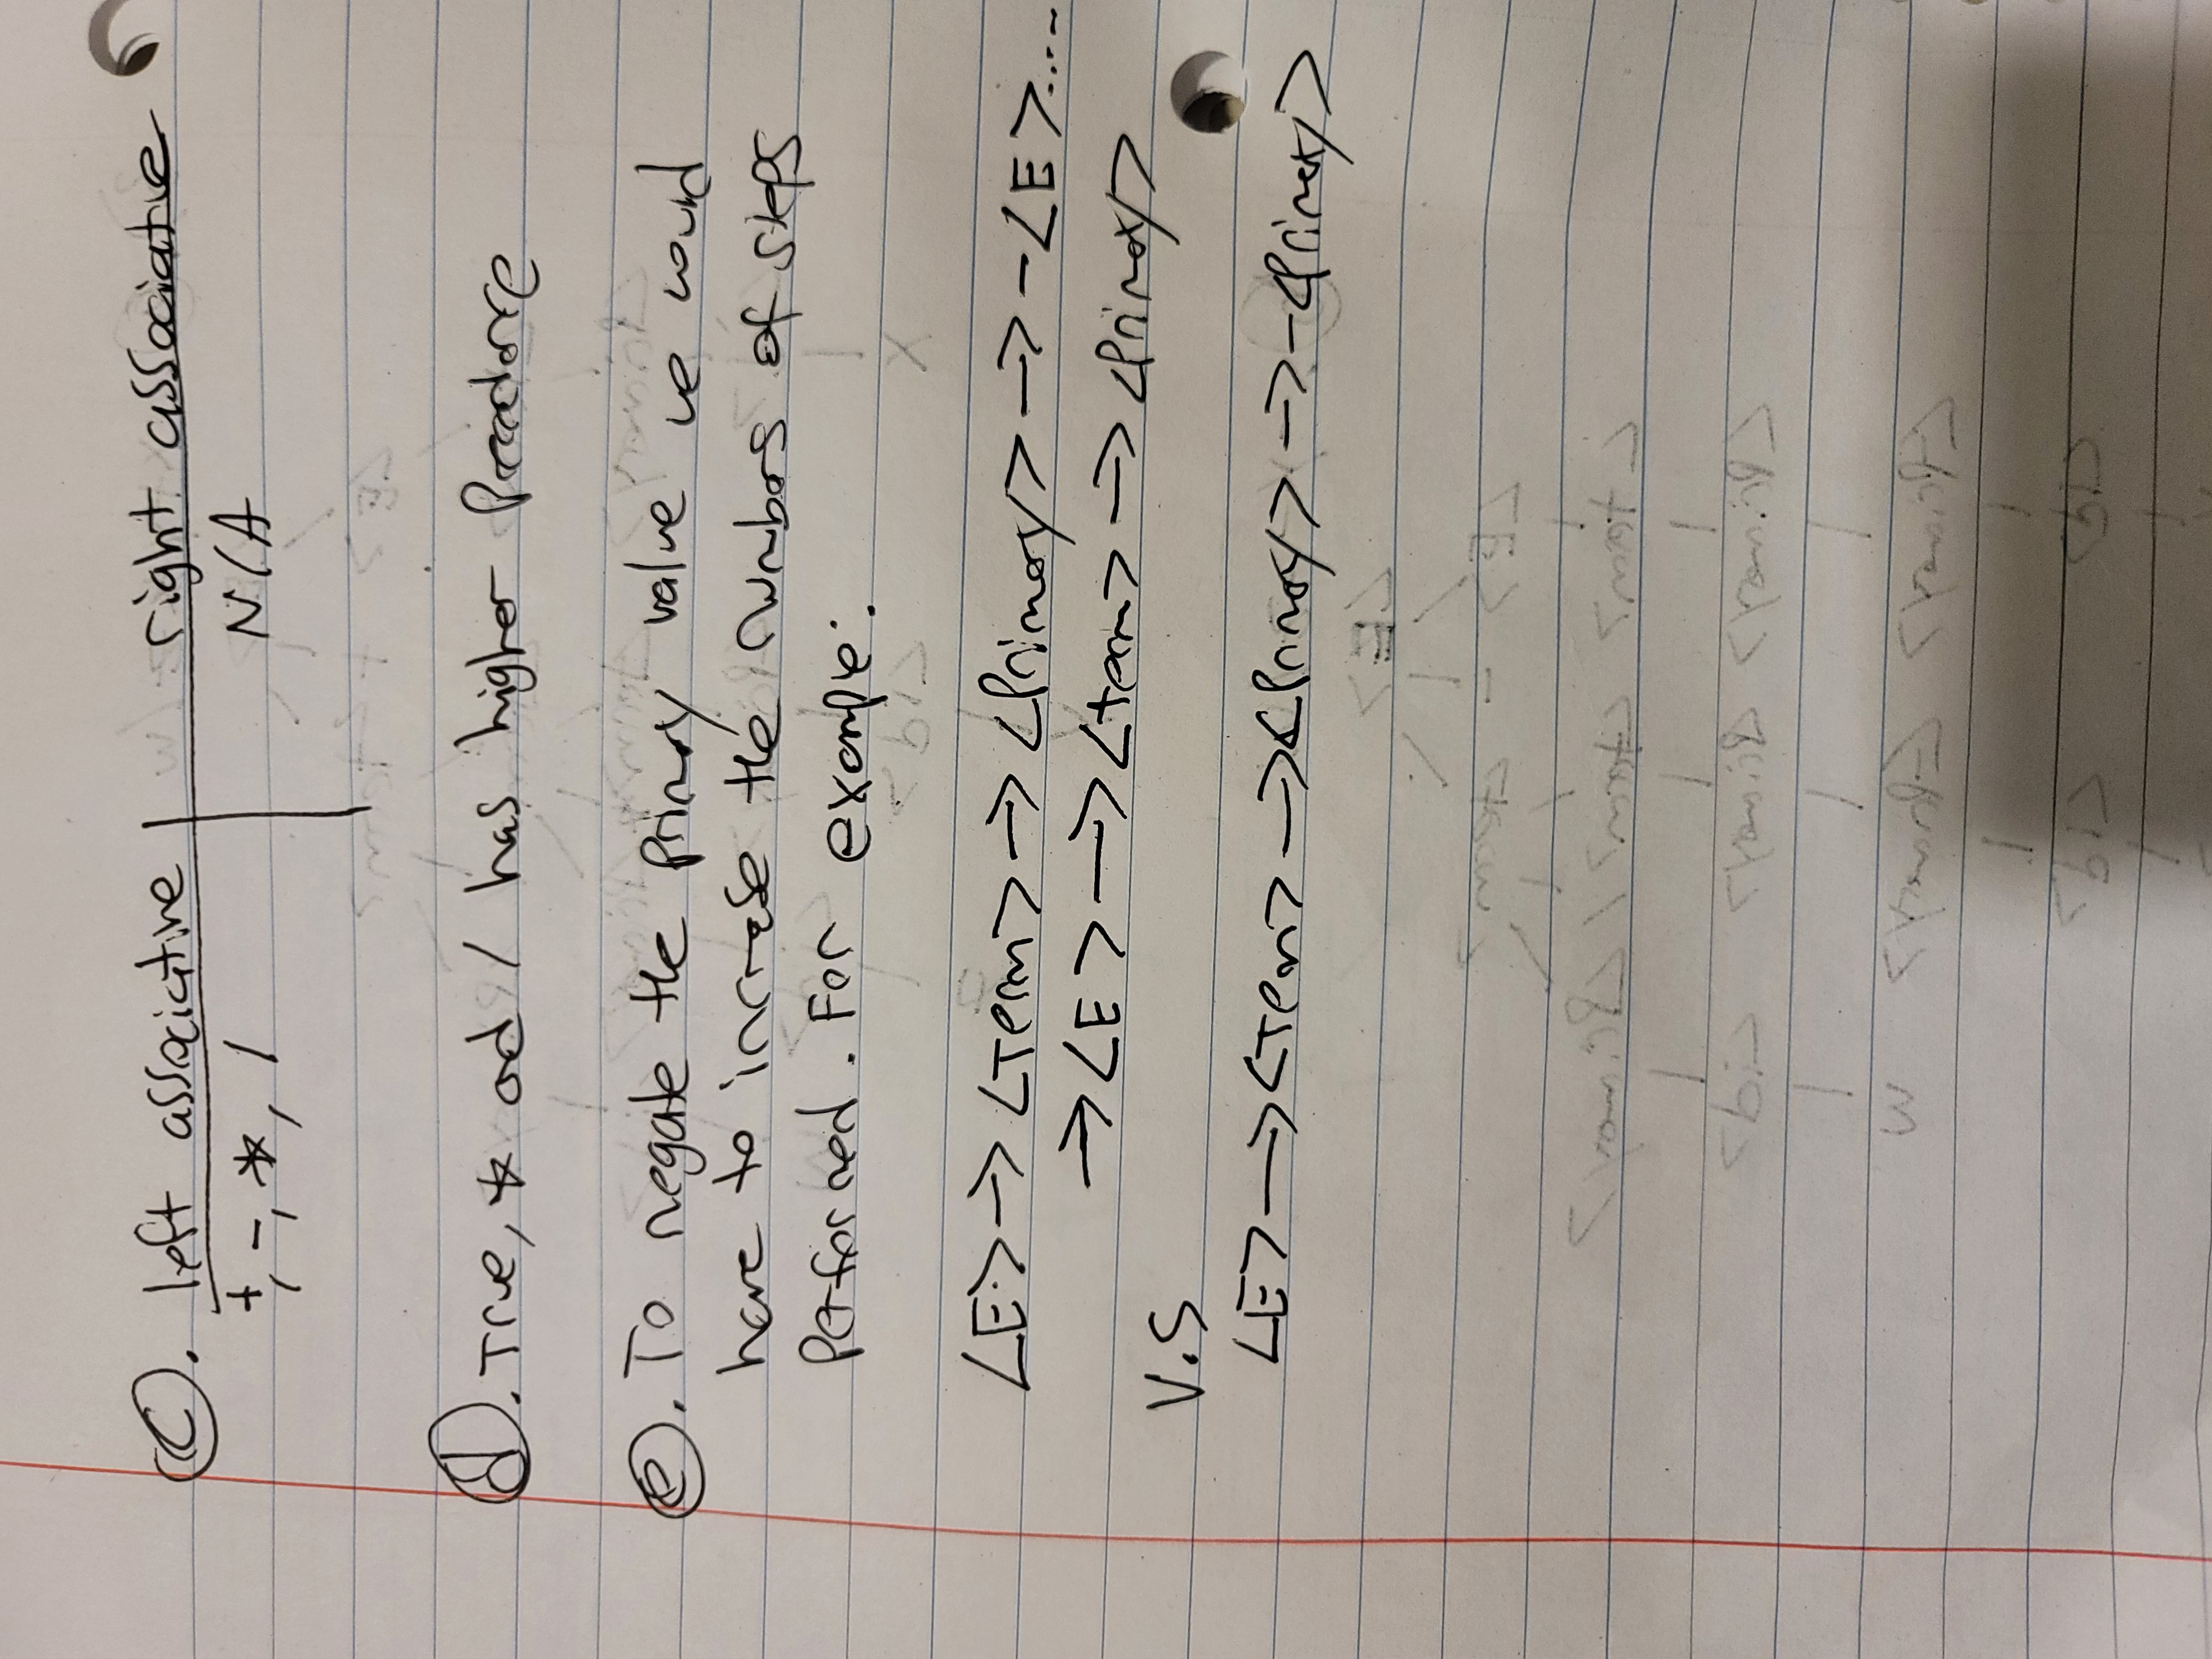 (c). left associative | right associative
+, -, *, / | N/A
(d). True, * and / has higher Precedence
(e). To negate the primary value we would
have to increase the numbers of steps
Performed. For example:
<E> → <Term> → <Primary> → -<E>....
→ <E> → <term> → <Primary>
V.S
<E> → <Term> → <Primary> → -<Primary>